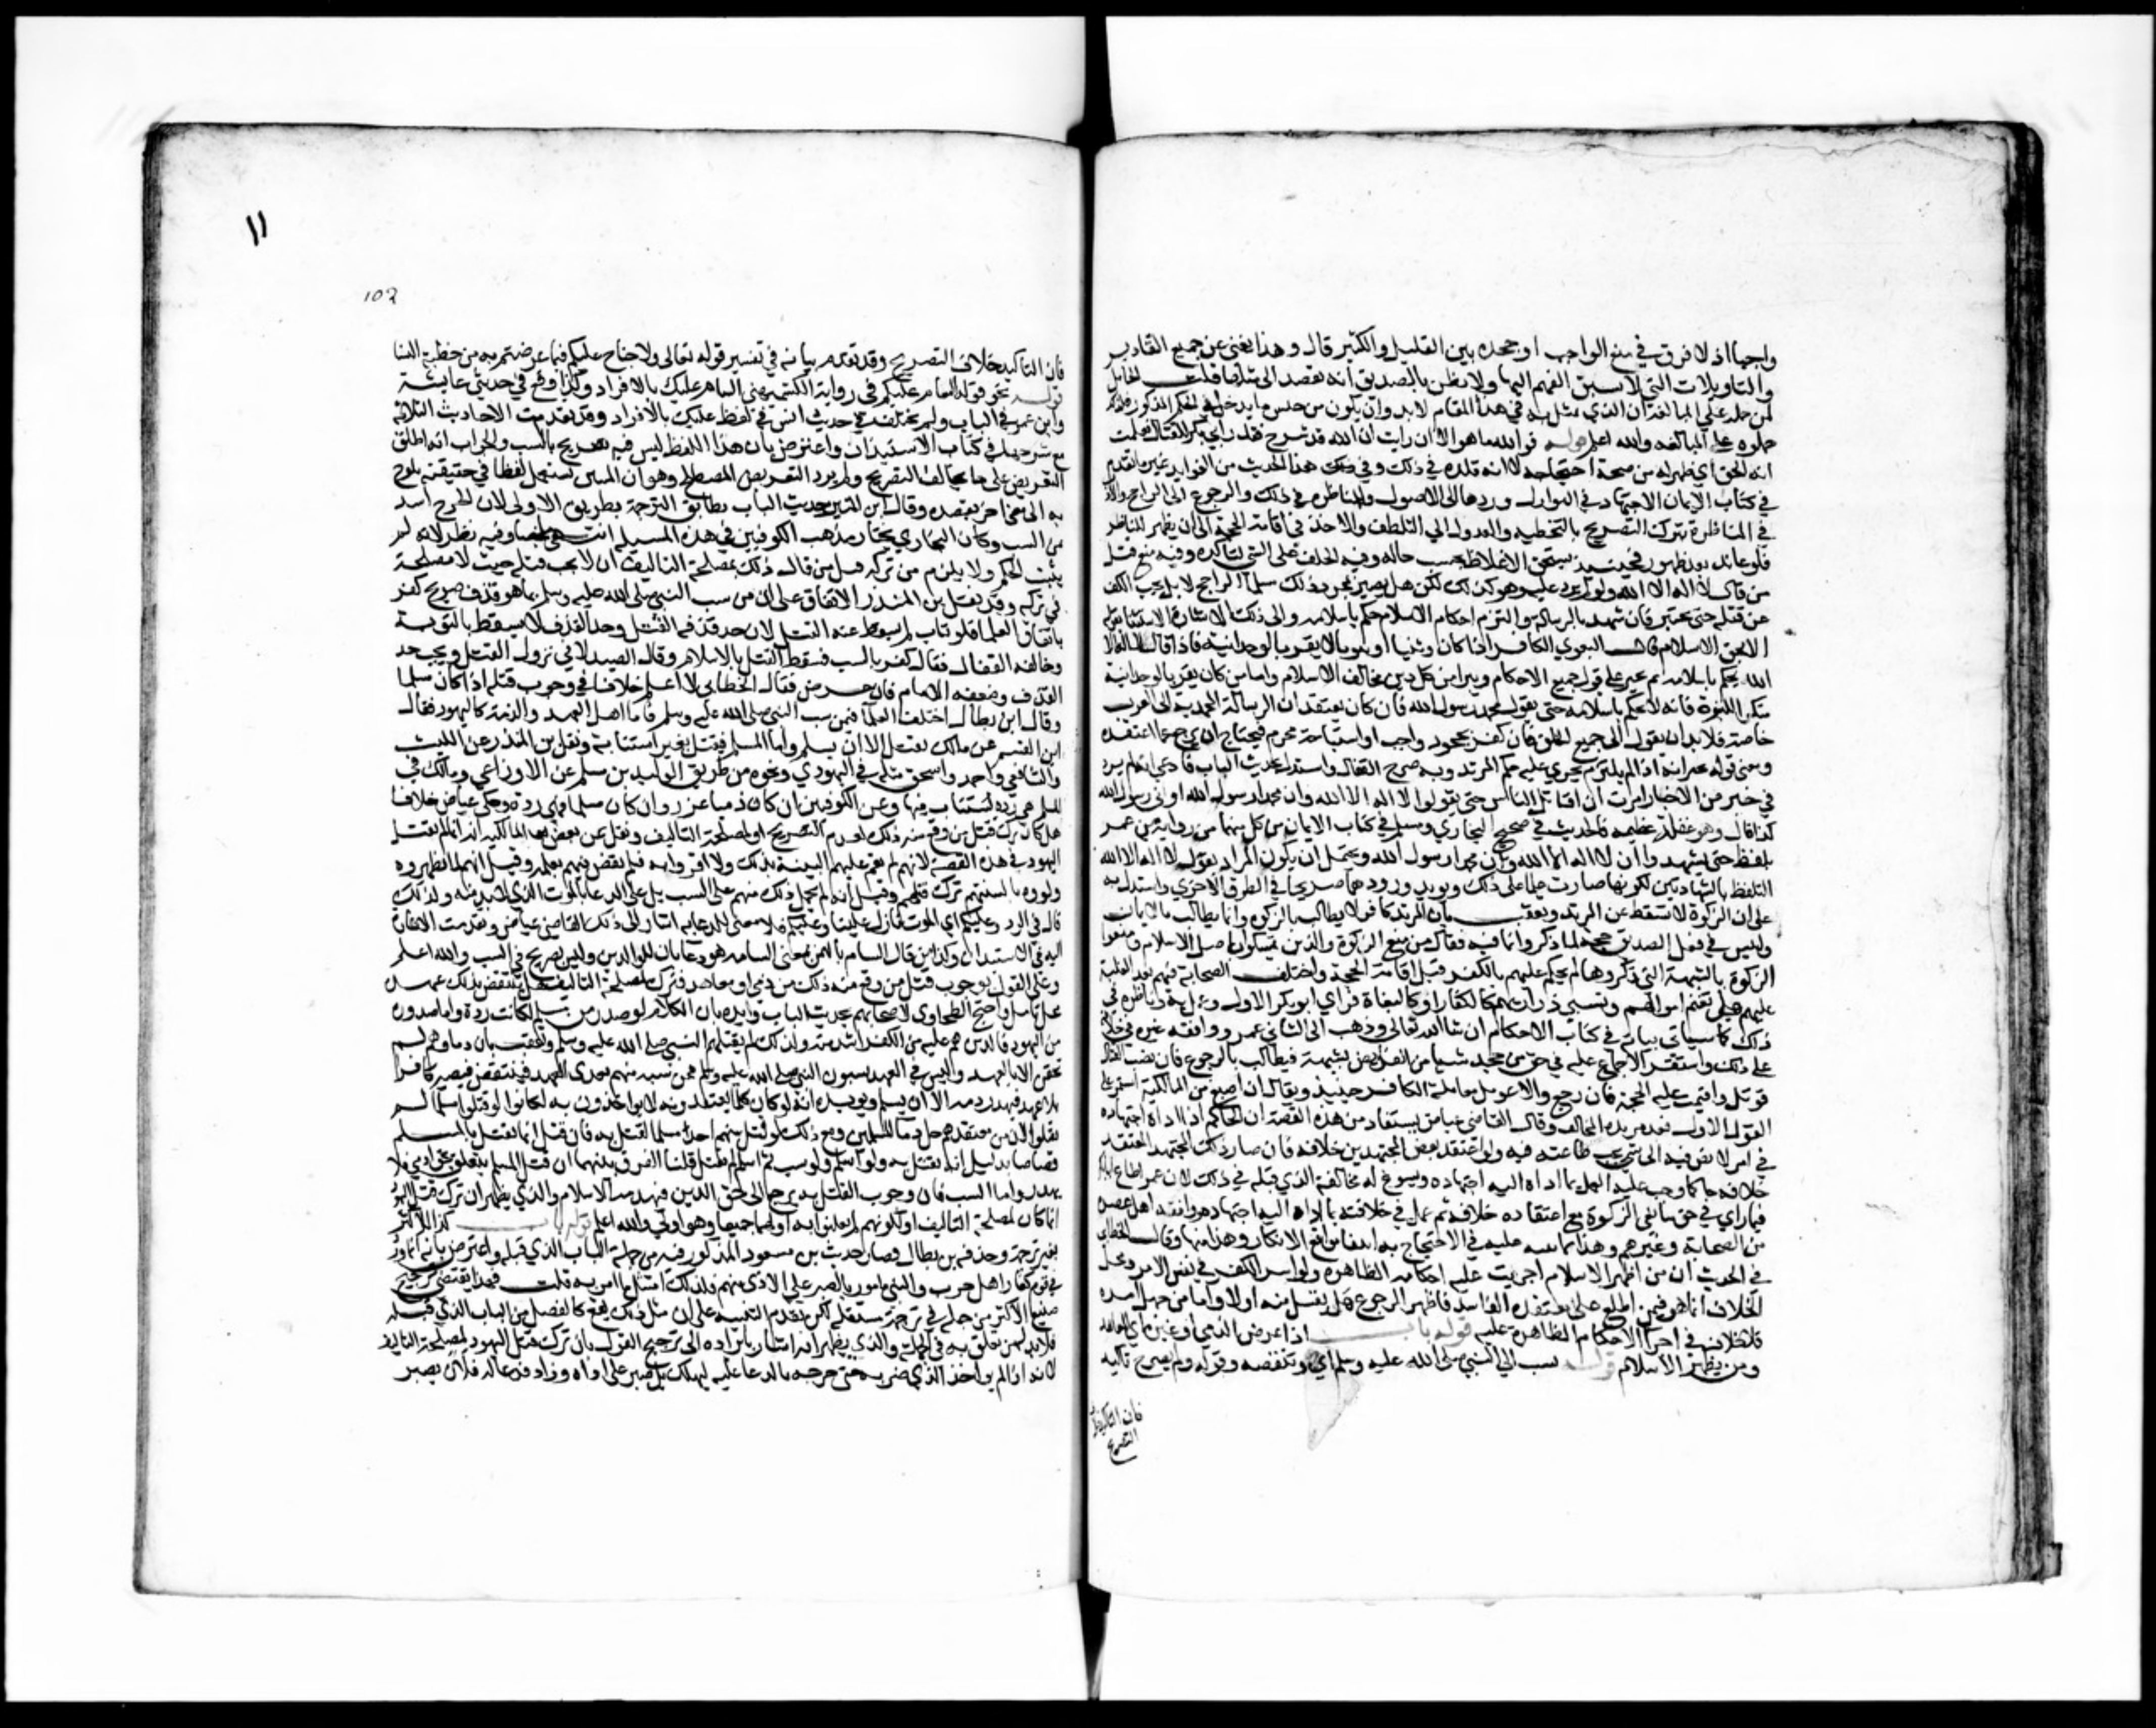 واجبها اذ لا فرق في منع الواجب او جحده بين القليل والكثير قال وهذا يغني عن جميع التقادير
والتاويلات التي لا يسبق الفهم اليها ولا يظن بالصديق انه يقصد الى مثلها قلت الحامل
لمن حمله على المبالغة ان الذي تمثل به في هذا المقام لا بد وان يكون من جنس ما يدخل في الحكم المذكور فلذلك
حملوه على المبالغه والله اعلم قوله فوالله ما هو الا ان رايت ان الله قد شرح صدر ابي بكر للقتال فعلمت
انه الحق اي ظهر له من صحة احتجاجه لا انه قلده في ذلك وفي هذا الحديث من الفوايد غير ما تقدم
في كتاب الايمان الاجتهاد في النوازل وردها الى الاصول والمناظره في ذلك والرجوع الى الراجح والادب
في المناظرة بترك التصريح بالتخطيه والعدول الى التلطف والاخذ في اقامة الحجة الى ان يظهر للمناظر
فلو عاند بعد ظهورها فحينئذ يستحق الاغلاظ بحسب حاله وفيه الحلف على الشي لتاكيده وفيه منع قتل
من قال لا اله الا الله ولو لم يزد عليها وهو كذلك لكن هل يصير بمجرد ذلك مسلما الراجح لا بل يجب الكف
عن قتله حتى يختبر فان شهد بالرسالة والتزم احكام الاسلام حكم باسلامه والى ذلك الاشارة بالاستثنا بقوله
الا بحق الاسلام قال البغوي الكافر اذا كان وثنيا او ثنويا لا يقر بالوحدانية فاذا قال لا اله الا
الله حكم باسلامه ثم يجبر على قبول جميع الاحكام ويبرا من كل دين خالف الاسلام واما من كان يقر بالوحدانية
منكرا للنبوة فانه لا يحكم باسلامه حتى يقول محمد رسول الله فان كان يعتقد ان الرسالة المحمدية الى العرب
خاصة فلا بد ان يقول الى جميع الخلق فان كان كفر بجحود واجب او استباحة محرم فيحتاج ان يرجع عما اعتقده
ومقتضى قوله يجبر انه اذا لم يلتزم يجري عليه حكم المرتد وبه صرح القفال واستدل بحديث الباب فادعى انه لم يرد
في خبر من الاخبار امرت ان اقاتل الناس حتى يقولوا لا اله الا الله وان محمدا رسول الله او اني رسول الله
كذا قال وهو غفلة عظيمه فالحديث في صحيح البخاري ومسلم في كتاب الايمان من كل منهما من رواية بن عمر
بلفظ حتى يشهدوا ان لا اله الا الله وان محمدا رسول الله ويحتمل ان يكون المراد بقوله لا اله الا الله
التلفظ بالشهادتين لكونها صارت علما على ذلك ويويده ورودهما صريحا في الطرق الاخرى واستدل به
على ان الزكوة لا تسقط عن المرتد وتعقب بان المرتد كافر لا يطالب بالزكوة وانما يطالب بالايمان
وليس في فعل الصديق حجة لما ذكر وانما فيه قتال من منع الزكوة والذين تمسكوا باصل الاسلام ومنعوا
الزكوة بالشبهة التي ذكروها لم يحكم عليهم بالكفر قبل اقامة الحجة واختلف الصحابة فيهم بعد الغلبة
عليهم هل تغنم اموالهم وتسبى ذراريهم كالكفار او كالبغاة فراى ابو بكر الاول وعمل به وناظره في
ذلك كما سياتي بيانه في كتاب الاحكام ان شا الله تعالى وذهب الى الثاني عمر ووافقه غيره في خلافته
على ذلك واستقر الاجماع عليه في حق من جحد شيا من الفرايض بشبهة فيطالب بالرجوع فان نصب القتال
قوتل واقيمت عليه الحجة فان رجع والا عومل معاملة الكافر حينيذ ويقال ان اصبغ من المالكية استقر على
القول الاول فعد من ندرة المخالف وقال القاضي عياض يستفاد من هذه القصة ان الحاكم اذا اداه اجتهاده
في امر لا نص فيه الى شي تجب طاعته فيه ولو اعتقد بعض المجتهدين خلافه فان صار ذلك المجتهد المعتقد
خلافه حاكما وجب عليه العمل بما اداه اليه اجتهاده ويسوغ له مخالفة الذي قبله في ذلك لان عمر اطاع ابا بكر
فيما راى في حق مانعي الزكوة مع اعتقاده خلافه ثم عمل في خلافته بما اداه اليه اجتهاده ووافقه اهل عصره
من الصحابة وغيرهم وهذا مما ينبه عليه في الاحتجاج به انتفا موانع الانكار وهذا منها وقال الخطابي
في الحديث ان من اظهر الاسلام اجريت عليه احكامه الظاهره ولو اسر الكفر في نفس الامر ومحل
الخلاف انما هو فيمن اطلع على معتقده الفاسد فاظهر الرجوع هل يقبل منه اولا واما من جهل امره
فلا خلاف في اجرا الاحكام الظاهرة عليه قوله باب اذا عرض الذمي او غيره اي المعاهد
ومن يظهر الاسلام قوله بسب النبي صلى الله عليه وسلم اي وتنقيصه وقوله ولم يصرح تاكيد
فان التاكيد بخلاف
التصريح
١١
102
فان التاكيد بخلاف التصريح وقد تقدم بيانه في تفسير قوله تعالى ولا جناح عليكم فيما عرضتم به من خطبة النسا
قوله نحو قوله السام عليكم في رواية الكشميهني السام عليك بالافراد وكذا وقع في حديثي عايشة
وابن عمر في الباب ولم يختلف في حديث انس في لفظ عليك بالافراد وقد تقدمت الاحاديث الثلاثة
مع شرحها في كتاب الاستيذان واعترض بان هذا اللفظ ليس فيه تعريض بالسب والجواب انه اطلق
التعريض على ما يخالف التصريح ولم يرد التعريض المصطلح وهو ان يستعمل لفظا في حقيقته يلوح
به الى معنى اخر يقصده وقال ابن المنير حديث الباب يطابق الترجمة بطريق الاولى لان الجرح اشد
من السب وكان البخاري يختار مذهب الكوفيين في هذه المسيلة انتهى ملخصا وفيه نظر لانه لم
يثبت الحكم ولا يلزم من تركه قتل من قال ذلك لمصلحة التاليف ان لا يجب قتله حيث لا مصلحة
في تركه وقد نقل بن المنذر الاتفاق على ان من سب النبي صلى الله عليه وسلم بما هو قذف صريح كفر
باتفاق العلما فلو تاب لم يسقط عنه القتل لان حد قذفه القتل وحد القذف لا يسقط بالتوبة
وخالفه القفال فقال كفر بالسب فسقط القتل بالاسلام وقال الصيدلاني يزول القتل ويجب حد
القذف وضعفه الامام فان عرض فقال الخطابي لا اعلم خلافا في وجوب قتله اذا كان مسلما
وقال ابن بطال اختلف العلما فيمن سب النبي صلى الله عليه وسلم فاما اهل العهد والذمة كاليهود فقال
ابن القسم عن مالك يقتل الا ان يسلم واما المسلم فيقتل بغير استتابة ونقل بن المنذر عن الليث
والشافعي واحمد واسحق مثله في اليهودي ونحوه من طريق الوليد بن مسلم عن الاوزاعي ومالك في
المسلم هي رده يستتاب منها وعن الكوفيين ان كان ذميا عزر وان كان مسلما فهي ردة وحكى عياض خلافا
هل كان ترك قتل من وقع منه ذلك لعدم التصريح او لمصلحة التاليف ونقل عن بعض المالكية انه انما لم يقتل
اليهود في هذه القصة لانهم لم تقم عليهم البينة بذلك ولا اقروا به فلم يقض فيهم بعلمه وقيل انهم لما لم يظهروه
ولووه بالسنتهم ترك قتلهم وقيل انه لم يحمل ذلك منهم على السب بل على الدعا بالموت الذي لا بد منه ولذلك
قال في الرد وعليكم اي الموت نازل علينا وعليكم فلا معنى للدعا به اشار الى ذلك القاضي عياض وتقدمت الاشارة
اليه في الاستيذان وكذا من قال السام بالهمز بمعنى السامه هو دعا بان يملوا الدين وليس بصريح في السب والله اعلم
وعلى القول بوجوب قتل من وقع منه ذلك من ذمي او معاهد فترك لمصلحة التاليف هل ينتقض بذلك عهده
محل تامل واحتج الطحاوي لاصحابهم بحديث الباب وايده بان الكلام لو صدر من مسلم لكانت ردة واما صدوره
من اليهود فالذين هم عليه من الكفر اشد منه فلذلك لم يقتلهم النبي صلى الله عليه وسلم وتعقب بان دماهم لم
تحقن الا بالعهد وليس في العهد يسبون النبي صلى الله عليه وسلم فمن سبه منهم تعدى العهد فينتقض فيصير كافرا
بلا عهد فيهدر دمه الا ان يسلم ويويده انه لو كان كل ما يعتقدونه لا يواخذون به لكانوا لو قتلوا مسلما لم
يقتلوا لان من معتقدهم حل دما المسلمين ومع ذلك لو قتل منهم احد مسلما لقتل به فان قيل انما يقتل بالمسلم
قصاصا بدليل انه يقتل به ولو اسلم ولو سب ثم اسلم لم يقتل قلنا الفرق بينهما ان قتل المسلم يتعلق بحق ادمي فلا
يهدر واما السب فان وجوب القتل به يرجع الى حق الدين فيهدمه الاسلام والذي يظهر ان ترك قتل اليهود
انما كان لمصلحة التاليف او لكونهم لم يعلنوا به او لهما جميعا وهو اولى والله اعلم قوله باب كذا للاكثر
بغير ترجمة وحذفه بن بطال فصار حديث بن مسعود المذكور فيه من جملة الباب الذي قبله واعترض بانه انما ورد
في قوم كفار اهل حرب والنبي مامور بالصبر على الاذى منهم فلذلك امتثل امر ربه قلت فهذا يقتضي ترجيح
صنيع الاكثر من جعله في ترجمة مستقله لكن تقدم التنبيه على ان مثل ذلك يقع كالفصل من الباب الذي قبله
فلا بد له من تعلق به في الجملة والذي يظهر انه اشار بايراده الى ترجيح القول بان ترك قتل اليهود لمصلحة التاليف
لانه اذا لم يواخذ الذي ضربه حتى جرحه بالدعا عليه ليهلك بل صبر على اذاه وزاد فدعا له فلان يصبر